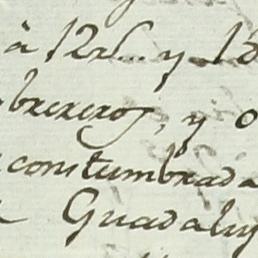 à 12rs... y 18
breros, y o
constumbrada
Guadalup